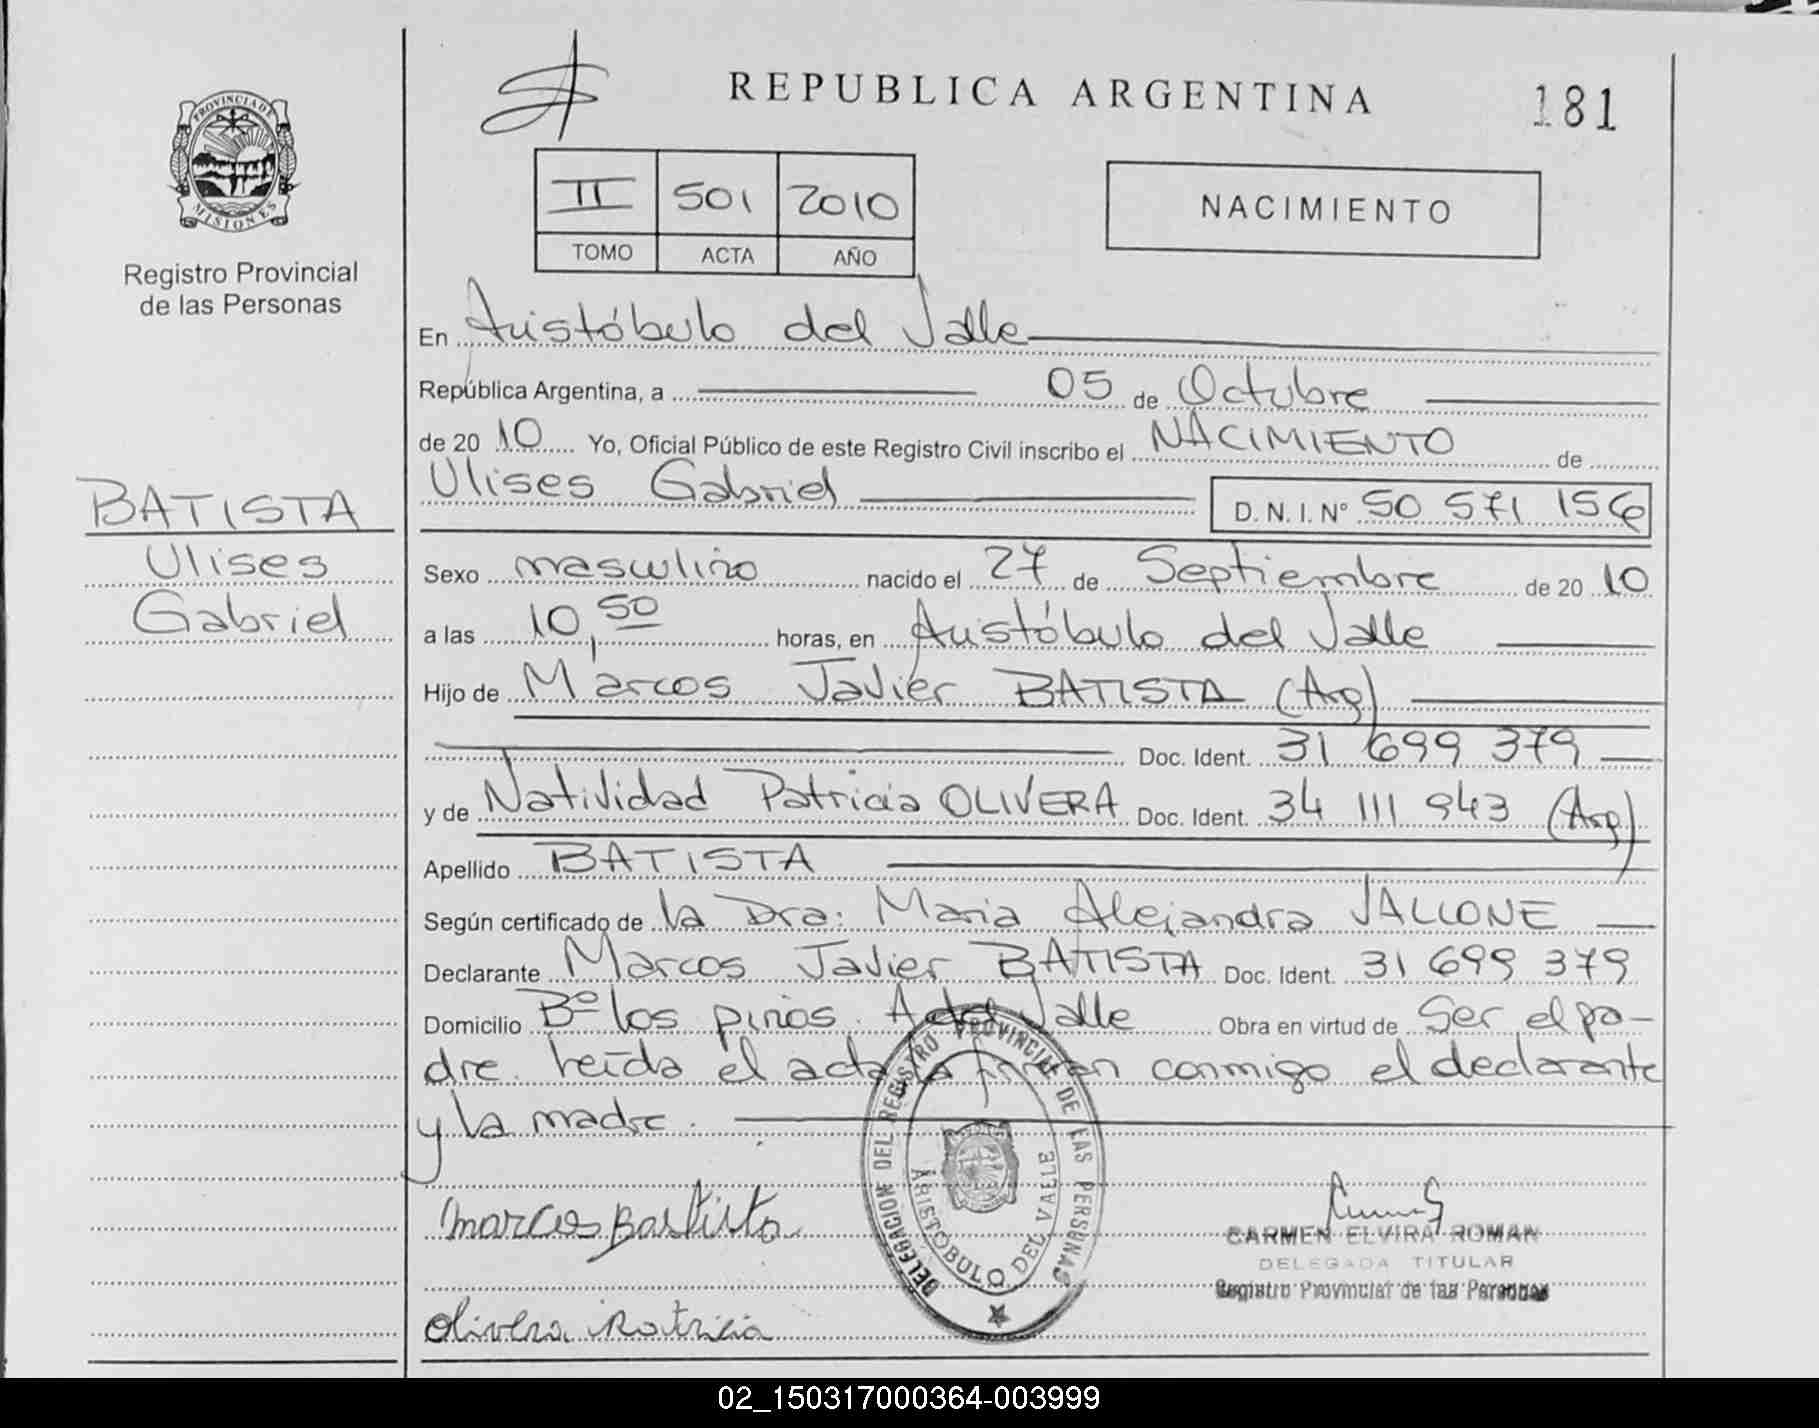 REPUBLICA ARGENTINA
181
PROVINCIA DE
MISIONES
Registro Provincial
de las Personas
II 501 2010
TOMO ACTA AÑO
NACIMIENTO
En Aristóbulo del Valle
República Argentina, a 05 de Octubre
de 20 10 Yo, Oficial Público de este Registro Civil inscribo el NACIMIENTO de
Ulises Gabriel D.N.I. Nº 50 571 156
BATISTA
Ulises
Gabriel
Sexo masculino nacido el 27 de Septiembre de 20 10
a las 10,50 horas, en Aristóbulo del Valle
Hijo de Marcos Javier BATISTA (Arg)
Doc. Ident. 31 699 379
y de Natividad Patricia OLIVERA Doc. Ident. 34 111 943 (Arg)
Apellido BATISTA
Según certificado de la Dra: Maria Alejandra VALLONE
Declarante Marcos Javier BATISTA Doc. Ident. 31 699 379
Domicilio Bº los pinos. A del Valle Obra en virtud de Ser el pa-
dre. leída el acta la firman conmigo el declarante
y la madre.
DELEGACION DEL REGISTRO PROVINCIAL DE LAS PERSONAS
ARISTOBULO DEL VALLE
Marcos Batista
CARMEN ELVIRA ROMAN
DELEGADA TITULAR
Registro Provincial de las Personas
Olivera Patricia
02_150317000364-003999